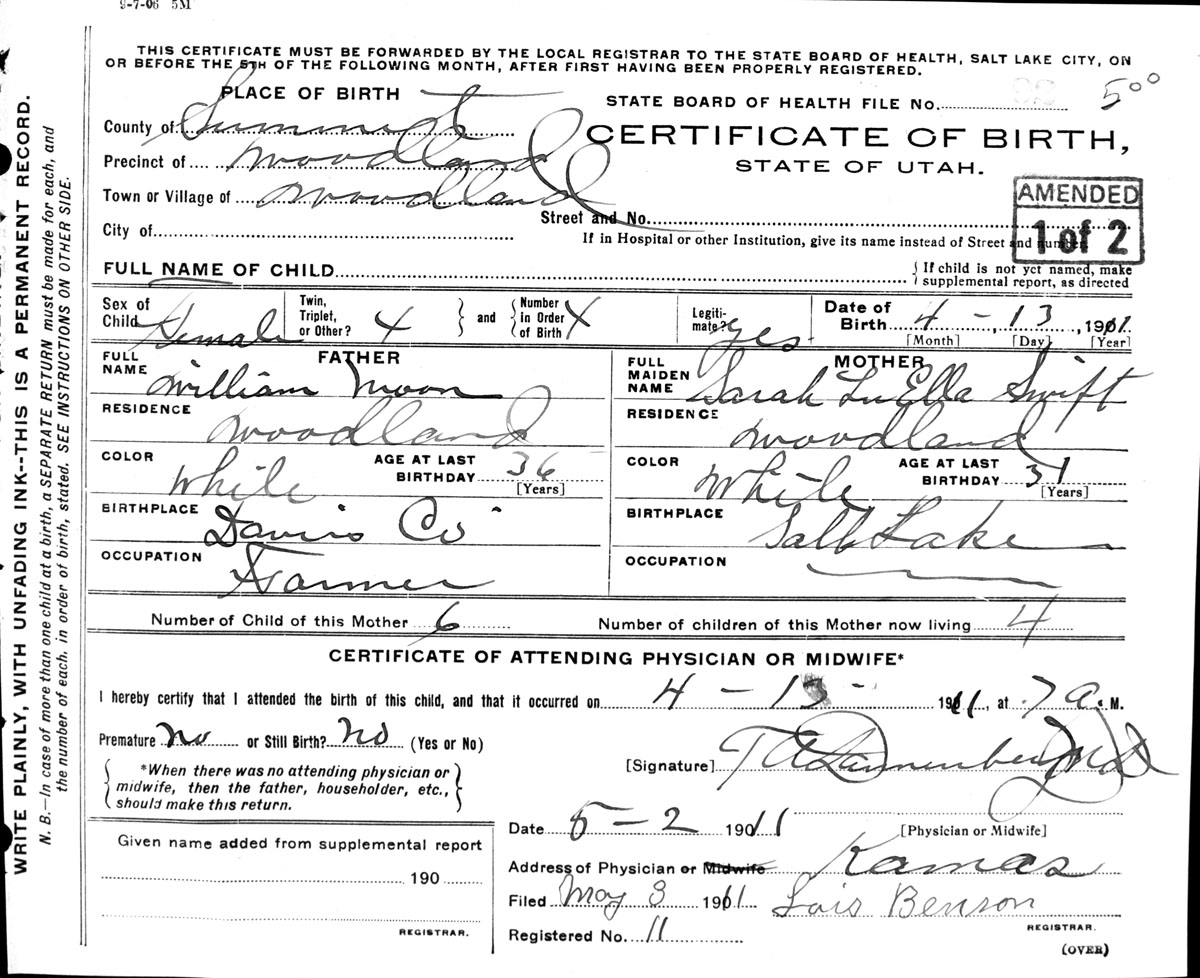 9-7-06 5M
THIS CERTIFICATE MUST BE FORWARDED BY THE LOCAL REGISTRAR TO THE STATE BOARD OF HEALTH, SALT LAKE CITY, ON
OR BEFORE THE 5TH OF THE FOLLOWING MONTH, AFTER FIRST HAVING BEEN PROPERLY REGISTERED.
PLACE OF BIRTH
STATE BOARD OF HEALTH FILE No.
5⁰⁰
County of Summit
CERTIFICATE OF BIRTH,
Precinct of Woodland
STATE OF UTAH.
Town or Village of Woodland
AMENDED
1 of 2
Street and No.
City of
If in Hospital or other Institution, give its name instead of Street and number.
FULL NAME OF CHILD
{ If child is not yet named, make
supplemental report, as directed
Sex of Child Female
Twin, Triplet, or Other? X
and
Number in Order of Birth X
Legiti-mate? yes
Date of Birth 4 - 13, 1911
[Month] [Day] [Year]
FATHER
FULL NAME William Moon
RESIDENCE Woodland
COLOR White
AGE AT LAST BIRTHDAY 36 [Years]
BIRTHPLACE Davis Co
OCCUPATION Farmer
MOTHER
FULL MAIDEN NAME Sarah LuElla Swift
RESIDENCE Woodland
COLOR White
AGE AT LAST BIRTHDAY 31 [Years]
BIRTHPLACE Salt Lake
OCCUPATION
Number of Child of this Mother 6
Number of children of this Mother now living 4
CERTIFICATE OF ATTENDING PHYSICIAN OR MIDWIFE*
I hereby certify that I attended the birth of this child, and that it occurred on 4 - 13 - 1911, at 7 a. M.
Premature no or Still Birth? no (Yes or No)
*When there was no attending physician or
midwife, then the father, householder, etc.,
should make this return.
[Signature]
[Physician or Midwife]
Date 5 - 2 1911
Address of Physician or Midwife Kamas
Filed May 3 1911 Lois Benson
REGISTRAR.
Registered No. 11
(OVER)
Given name added from supplemental report
190
REGISTRAR.
WRITE PLAINLY, WITH UNFADING INK--THIS IS A PERMANENT RECORD.
N. B.—In case of more than one child at a birth, a SEPARATE RETURN must be made for each, and
the number of each, in order of birth, stated. SEE INSTRUCTIONS ON OTHER SIDE.